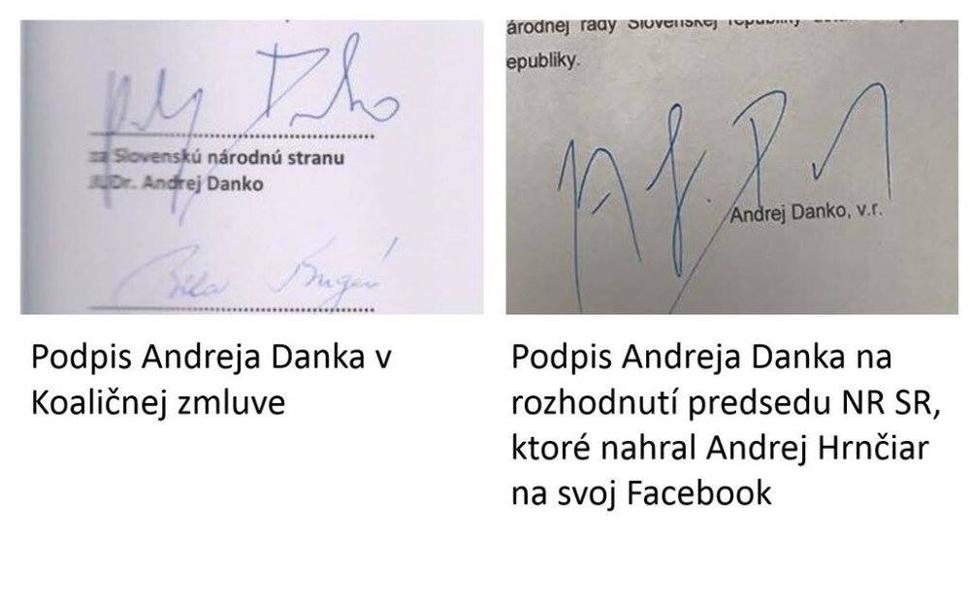 Danko
za Slovenskú národnú stranu
JUDr. Andrej Danko
Béla Bugár
árodnej rady Slovenskej republiky
epubliky.
Andrej Danko, v.r.
Podpis Andreja Danka v
Koaličnej zmluve
Podpis Andreja Danka na
rozhodnutí predsedu NR SR,
ktoré nahral Andrej Hrnčiar
na svoj Facebook